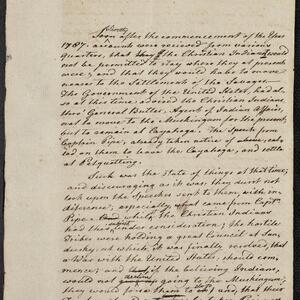 Shortly
Soon after the commencement of the Year
1787. accounts were received from various
Quarters, that the Christian Indians would
not be permitted to stay where they at present
were; and that they would have to move
nearer to the Settlements of the Savages.
The Government of the United States, had al-
so at this time, advised the Christian Indians
thro' General Butler, Agent of Indian Affairs,
not to move to the Muskingum for the present,
but to remain at Cayahaga. The Speech from
Captain Pipe, already taken notice of
led on them to leave the Cayahaga, and settle
at Petquotting.
Such was the State of things at that time;
and discouraging as it was; they durst not
look upon the Speeches sent to them, with in-
difference, especially what came from Capt.
Pipe which, the Christian Indians
had this subject under consideration; the hostile
Tribes were holding a grand Council at San-
dusky, at which it was finally resolved, that
a War with the United States, should com-
mence; and the Indians,
would not going to the Muskingum;
They would for them to